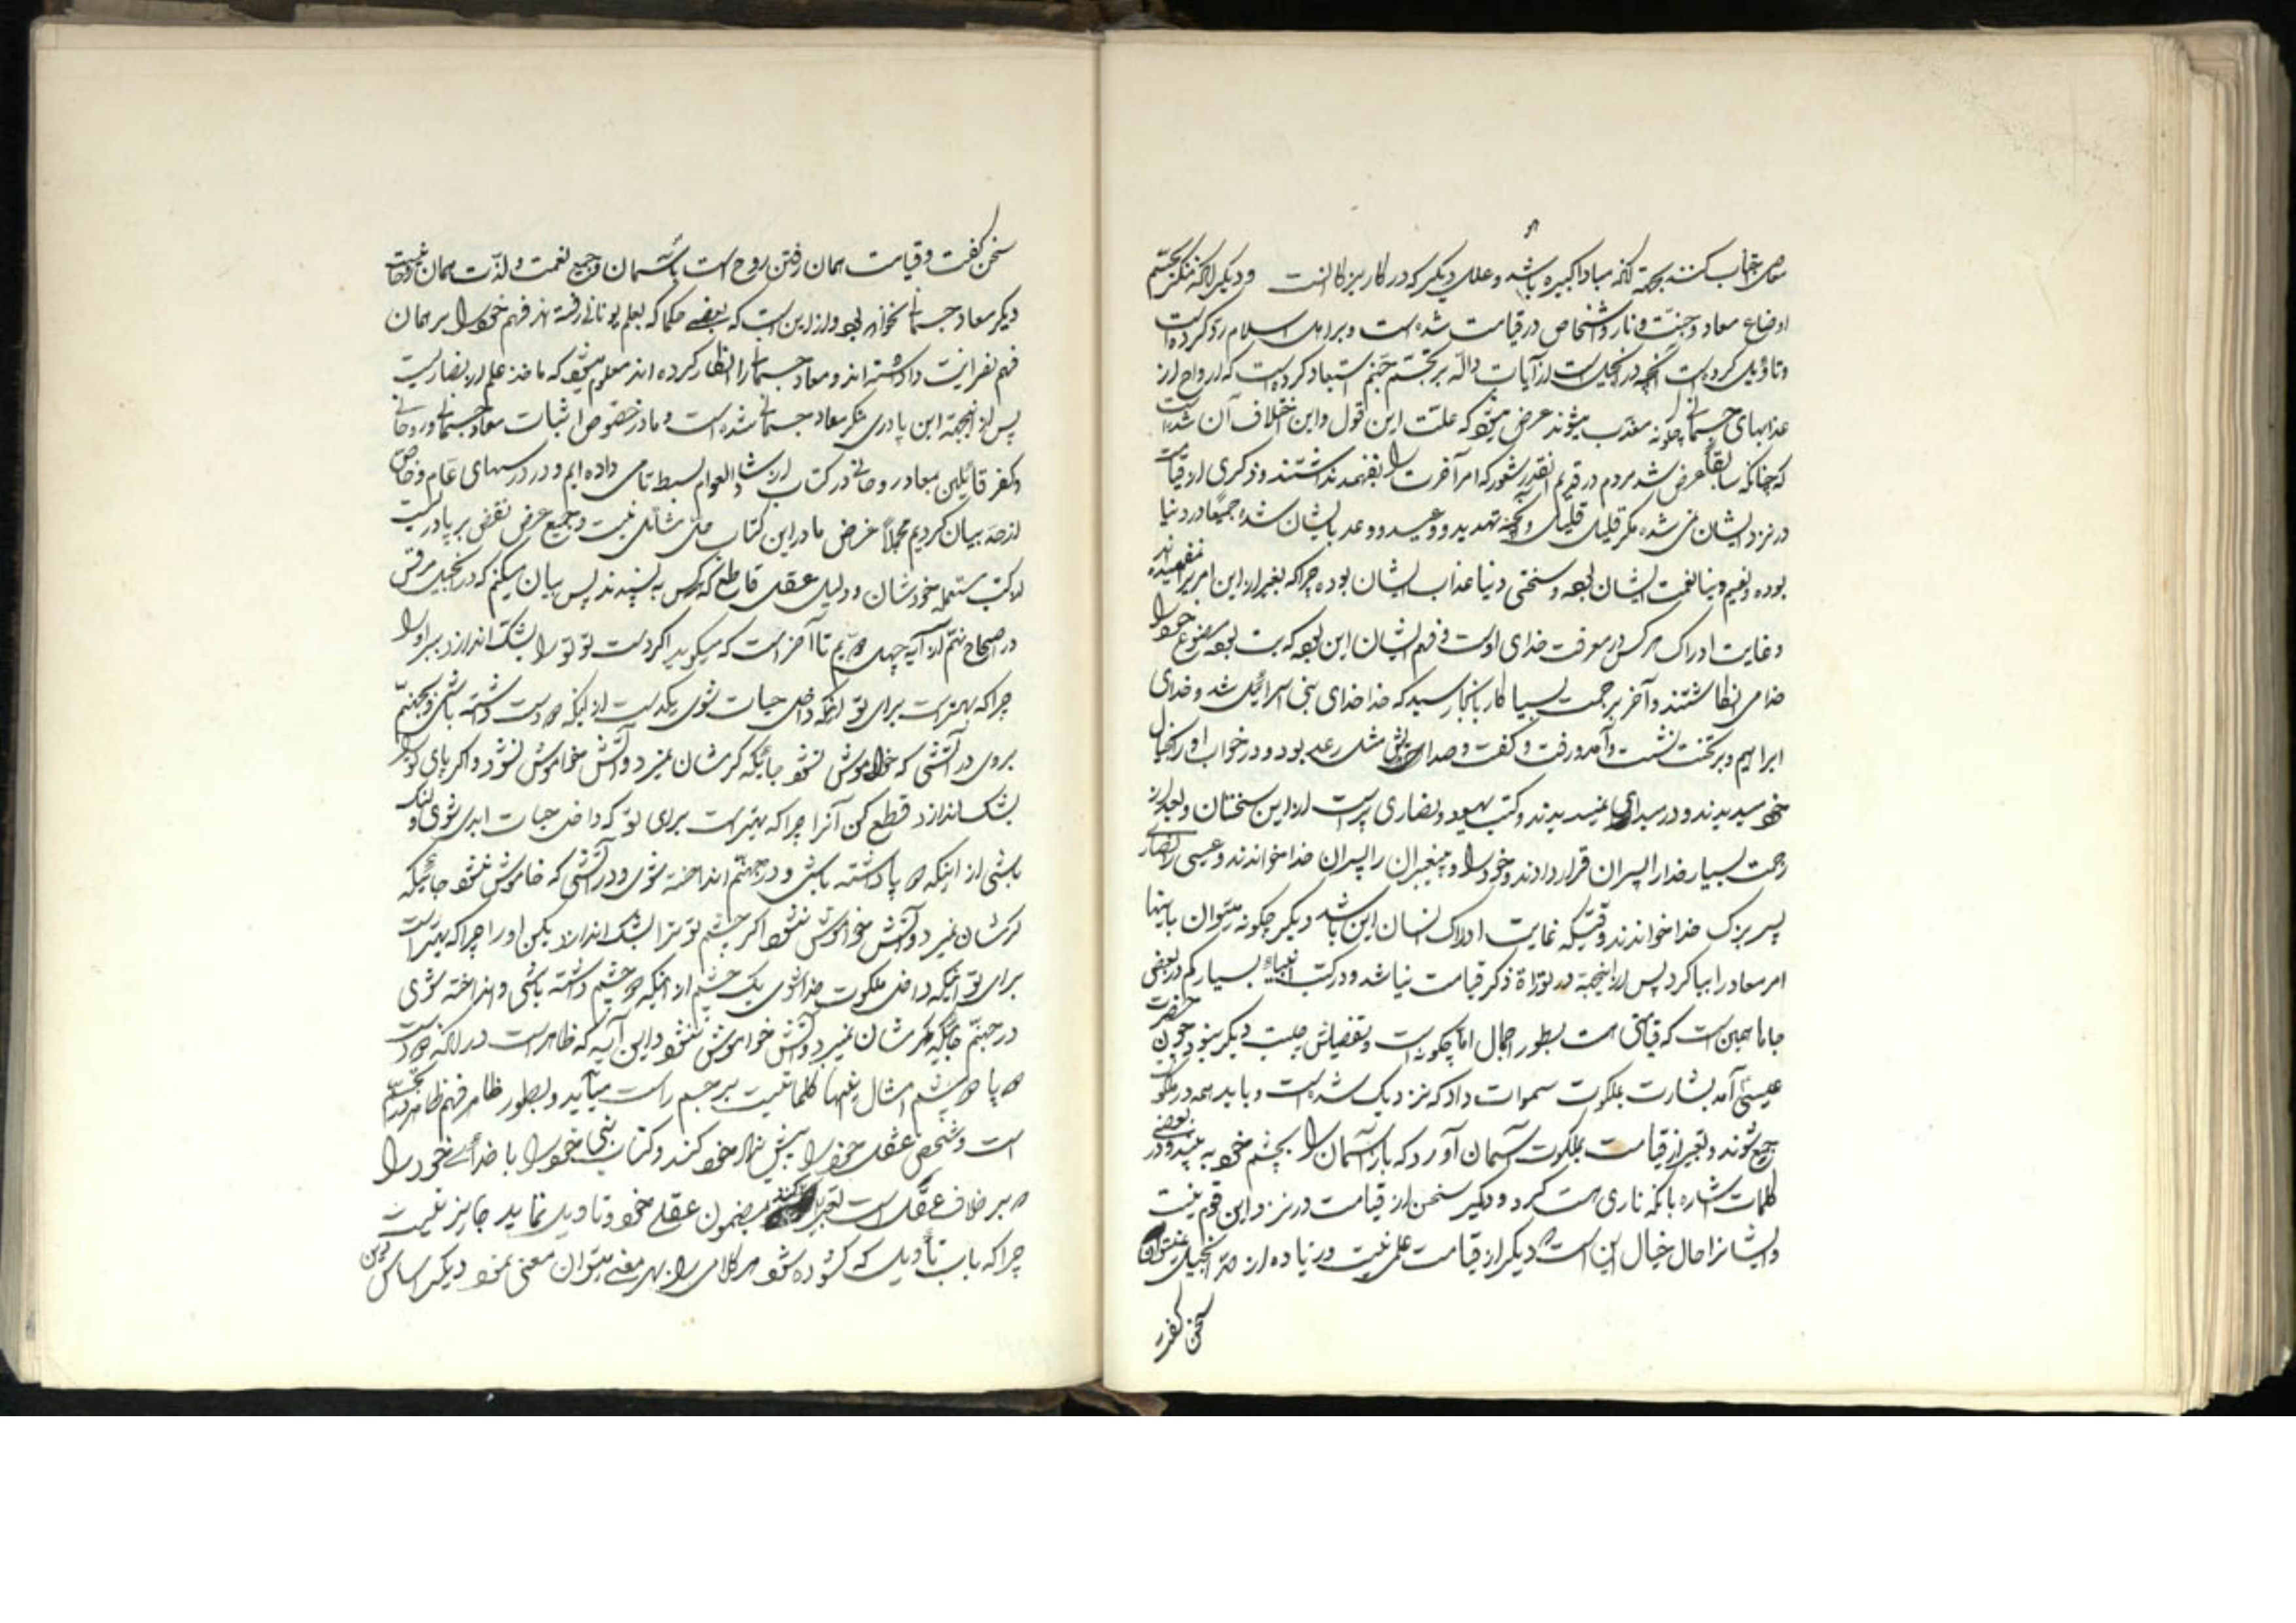 معاصی اجتناب کنند بجهة آنکه مبادا کبیره باشد و علل دیگر که در کار بزرگان است و دیگر آنکه منکر تجسّم
اوضاع معاد و جنّت و نار و اشخاص در قیامت شده است و بر اهل اسلام رد کرده است
و تاؤیل کرده است آنچه در انجیل است از آیات دالّه بر تجسّم جهنم استبعاد کرده است که ارواح از
عذابهای جسمانی چگونه معذب میشوند عرض میشود که علّت این قول و این اختلاف آن شده است
که چنانکه سابقاً عرض شد مردم در قدیم آنقدر شعور که امر آخرت را بفهمند نداشتند و ذکری از قیامت
در نزد ایشان نمی شده مگر قلیلی قلیلی و آنچه تهدید و وعید و وعد بایشان شده جمیعاً در دنیا
بوده و نعیم دنیا نعمت ایشان بوده و سختی دنیا عذاب ایشان بوده چراکه بغیر از این امر را نمی فهمیده اند
و غایت ادراک هر کس در معرفت خدای اوست و فهم ایشان این بوده که بت مصنوع خود را
خدا می انگاشتند و آخر بزحمت بسیار کار بانجا رسید که خدا خدای بنی اسرائیل شد و خدای
ابراهیم و بر تخت نشست و آمد و رفت و گفت و صدایش مثل رعد بود و در خواب او را بخیال
خود میدیدند و در بیداری نمیدیدند و کتب یهود و نصاری پر است از این سخنان و بعد از
زحمت بسیار خدا را پسران قرار دادند و خود را و پیغمبران را پسران خدا خواندند و عیسی را نصاری
پسر بزرگ خدا خواندند وقتیکه غایت ادراک انسان این باشد دیگر چگونه میتوان باینها
امر معاد را بیان کرد پس از اینجهة در توراة ذکر قیامت نیاشد و در کتب انبیاء بسیار کم در بعضی
جاها همین است که قیامتی هست بطور اجمال اما چگونه است و تفضیلش چیست دیگر نبود چون حضرت
عیسی آمد بشارت بملکوت سموات داد که نزدیک شده است و باید همه در ملکوت
جمع شوند و تعبیر از قیامت بملکوت آسمان آورد که باز آسمان را بچشم خود به بینند و در بعضی
کلمات اشاره بانکه ناری هست کرد و دیگر سخن از قیامت در نزد این قوم نیست
و ایشانرا حال خیال این است دیگر از قیامت علمی نیست و زیاده از حد انجیل نمیتوان
سخن گفت
سخن گفت و قیامت همان رفتن روح است باسمان و جمیع نعمت و لذّت همان روحانیت
دیگر معاد جسمانی نخواهد بود و از این است که بعضی حکما که بعلم یونانی رفته اند فهم خود را بر همان
فهم نصرانیت داشته اند و معاد جسمانی را انکار کرده اند معلوم میشود که ماخذ علم از نصاریست
پس از اینجهة این پادری منکر معاد جسمانی شده است و ما در خصوص اثبات معاد جسمانی و روحانی
و کفر قائلین بمعاد روحانی در کتاب ارشاد العوام بسط تامی داده ایم و در درسهای عام و خاص
از حد بیان کردیم مجملاً غرض ما در این کتاب حل مسائل نیست و جمیع غرض نقض بر پادریست
از کتب مستعمله خودشان و دلیل عقلی قاطع که هر کس به پسندد پس بیان میکنم که در انجیل مرقس
در اصحاح نهم از آیه چهل و سیم تا آخر است که میگوید اگر دست تو تو را بشک اندازد ببر او را
چراکه بهتر است برای تو آنکه داخل حیات شوی یکدست از اینکه دو دست داشته باشی و بجهنّم
بروی در آتشی که خواموش نشود جائیکه کرمشان نمیرد و آتش خواموش نشود و اگر پای تو تو را
بشک اندازد قطع کن آنرا چراکه بهتر است برای تو که داخل حیات ابدی شوی و لنگ
باشی از اینکه دو پا داشته باشی و در جهنّم انداخته شوی و در آتشی که خاموش نشود جائیکه
کرمشان نمیرد و آتش خواموش نشود اگر چشم تو ترا بشک اندازد بکن او را چراکه بهتر است
برای تو اینکه داخل ملکوت خدا شوی یک چشم از اینکه دو چشم داشته باشی و انداخته شوی
در جهنّم جائیکه کرمشان نمیرد و آتش خواموش نشود و این آیه که ظاهر است در آنکه دو دست
دو پا دو چشم امثال اینها کلماتیست بر جسم راست میآید و بطور ظاهر فهم ظاهر تجسم
است و شخص عقل خود را پیش نماز خود کند و کتاب نبی خود را با خدای خود را
هر بر خلاف عقل است تعبیر کند بمضمون عقلی خود و تاویل نماید جایز نیست
چراکه باب تأویل که گشوده شود هر کلامی را بهر معنی میتوان معنی نمود دیگر اساس دین